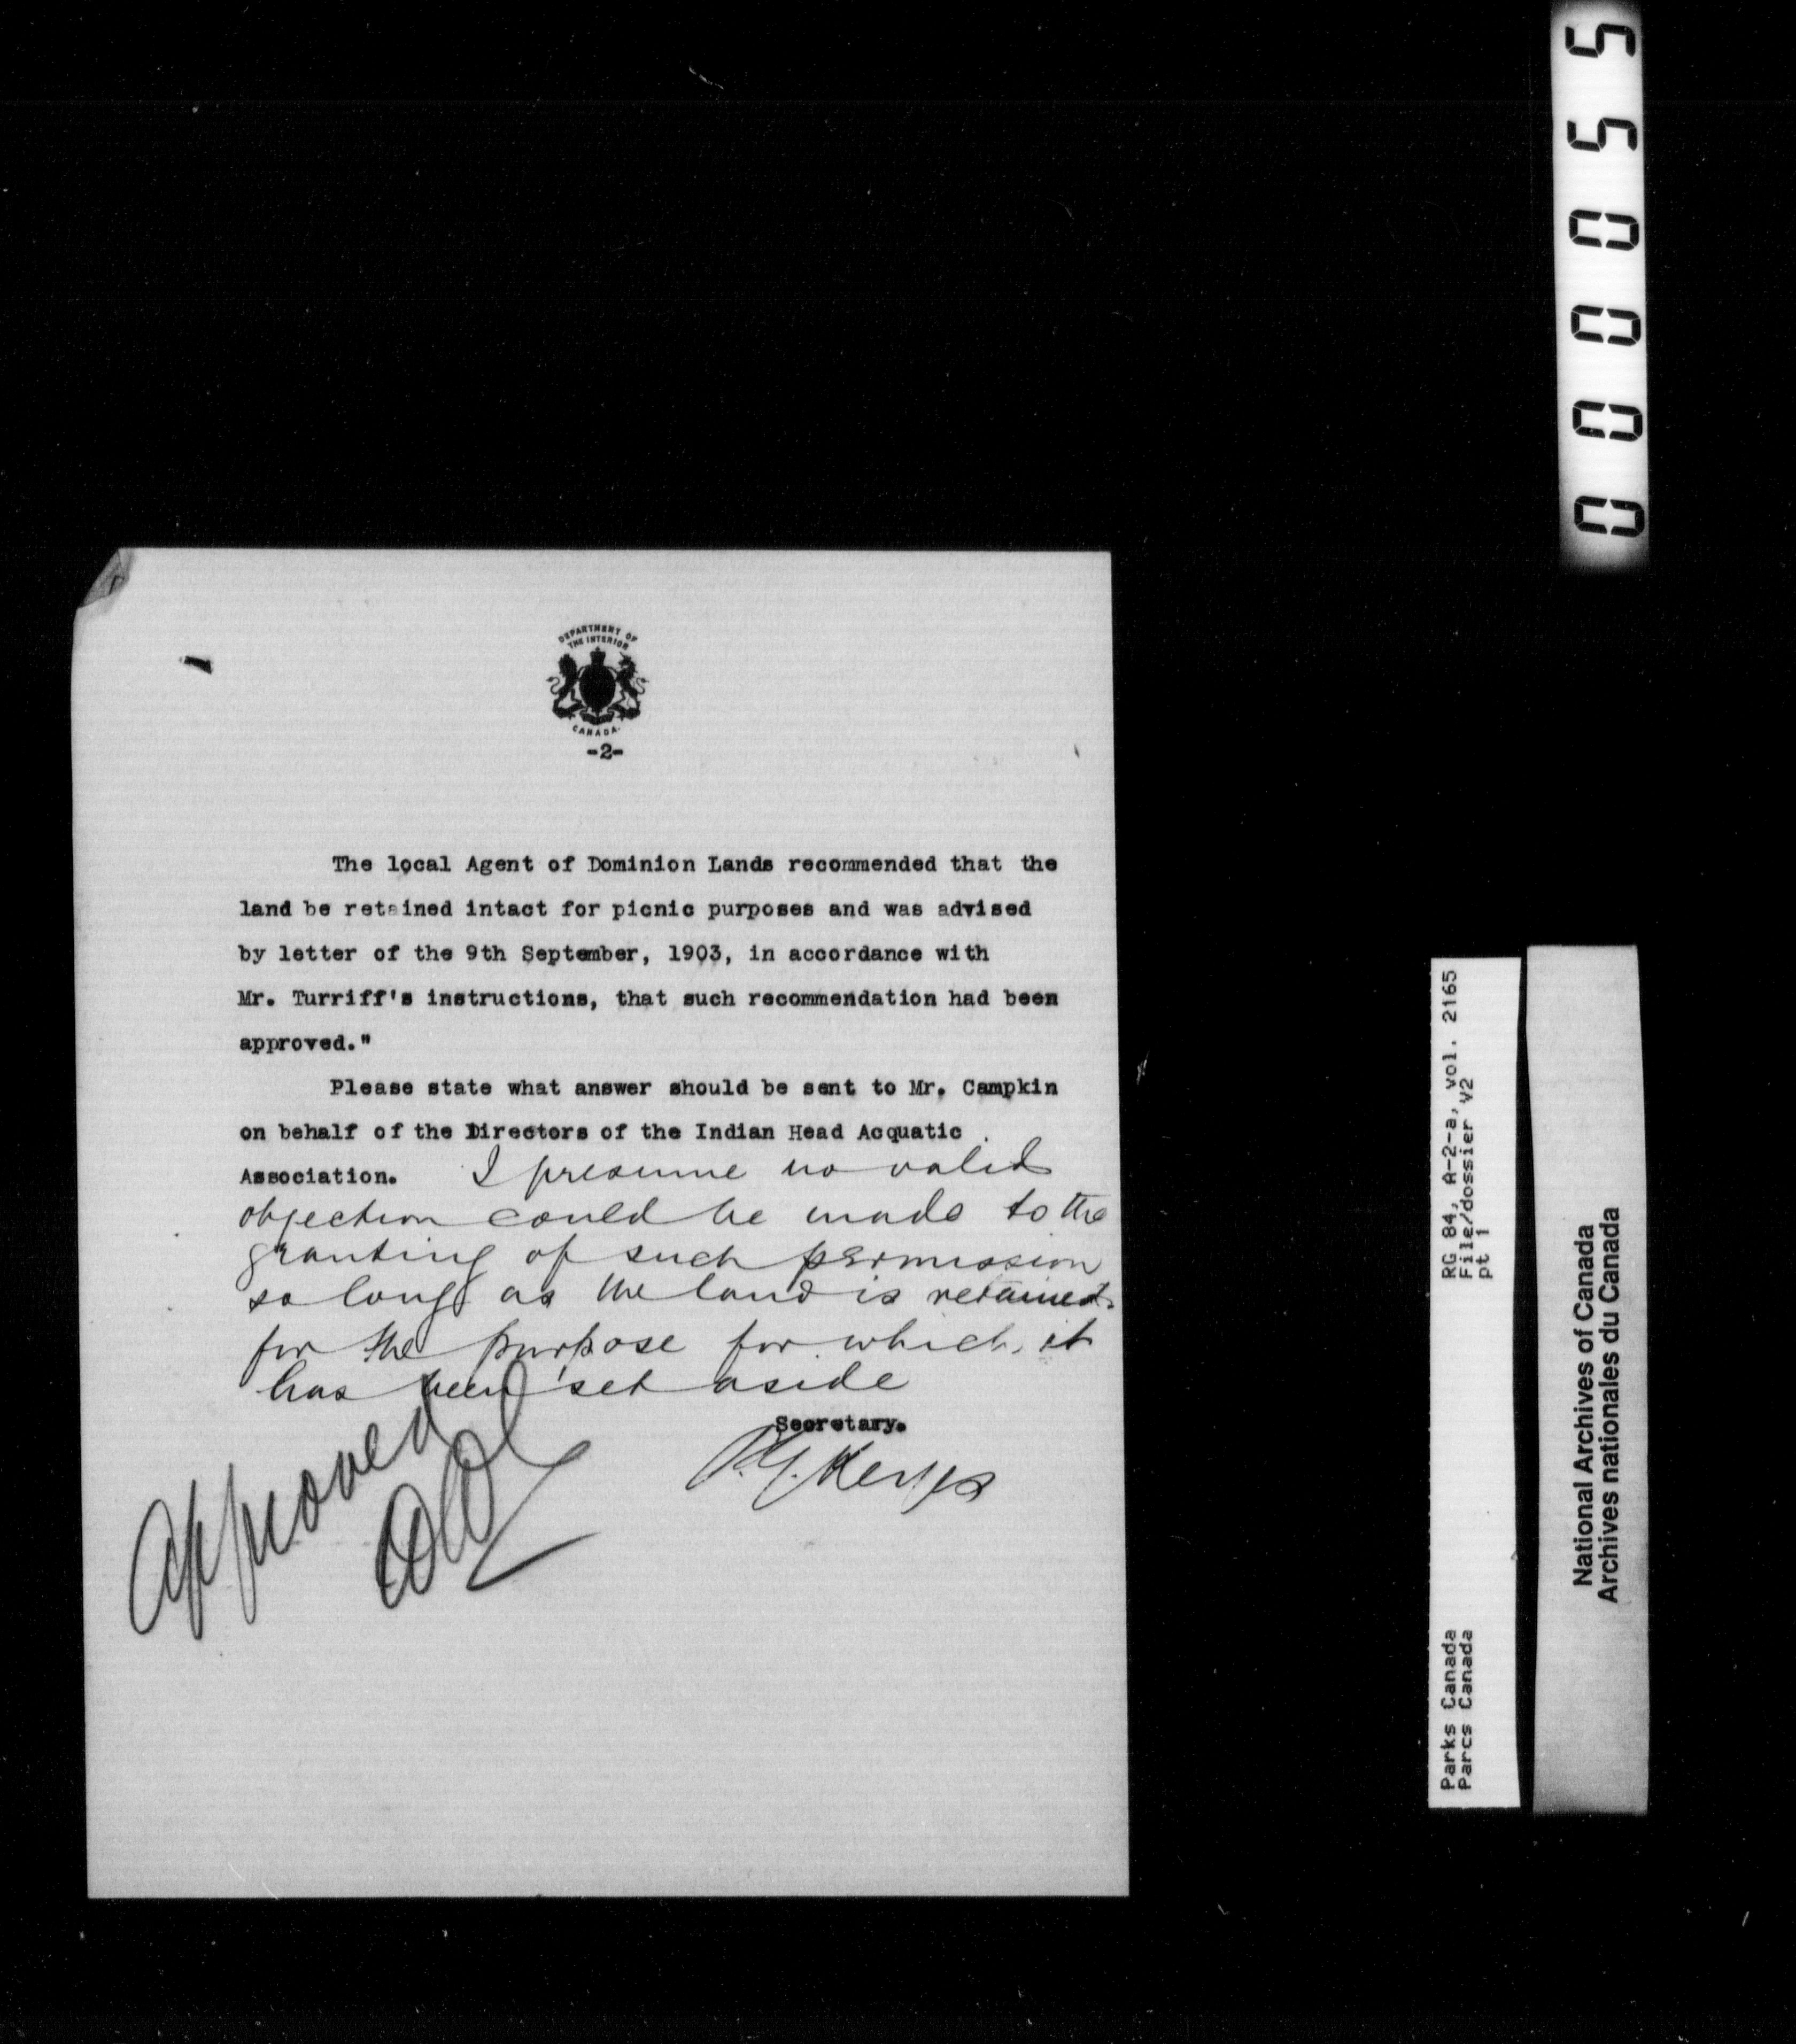 DEPARTMENT OF
THE INTERIOR
CANADA.
-2-
The local Agent of Dominion Lands recommended that the
land be retained intact for picnic purposes and was advised
by letter of the 9th September, 1903, in accordance with
Mr. Turriff's instructions, that such recommendation had been
approved."
Please state what answer should be sent to Mr. Campkin
on behalf of the Directors of the Indian Head Acquatic
Association. I presume no valid
objection could be made to the
granting of such permission
so long as the land is retained
for the purpose for which it
has been set aside
Secretary.
Approved
000055
RG 84, A-2-a, vol. 2165
File/dossier V2
pt 1
Parks Canada
Parcs Canada
National Archives of Canada
Archives nationales du Canada